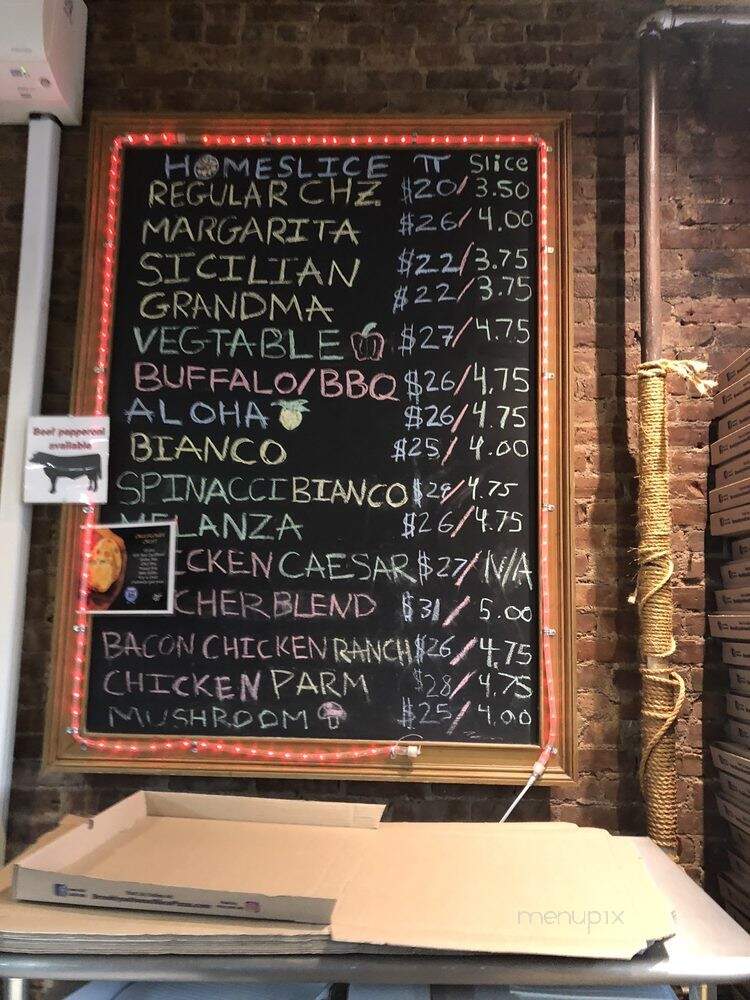 HOMESLICE π Slice
REGULAR CHZ $20/3.50
MARGARITA $26/4.00
SICILIAN $22/3.75
GRANDMA $22/3.75
VEGTABLE $27/4.75
BUFFALO/BBQ $26/4.75
ALOHA $26/4.75
BIANCO $25/4.00
SPINACCI BIANCO $28/4.75
MELANZA $26/4.75
CKEN CAESAR $27/N/A
CHER BLEND $31/5.00
BACON CHICKEN RANCH $26/4.75
CHICKEN PARM $28/4.75
MUSHROOM $25/4.00
Beef pepperoni
available
menupix